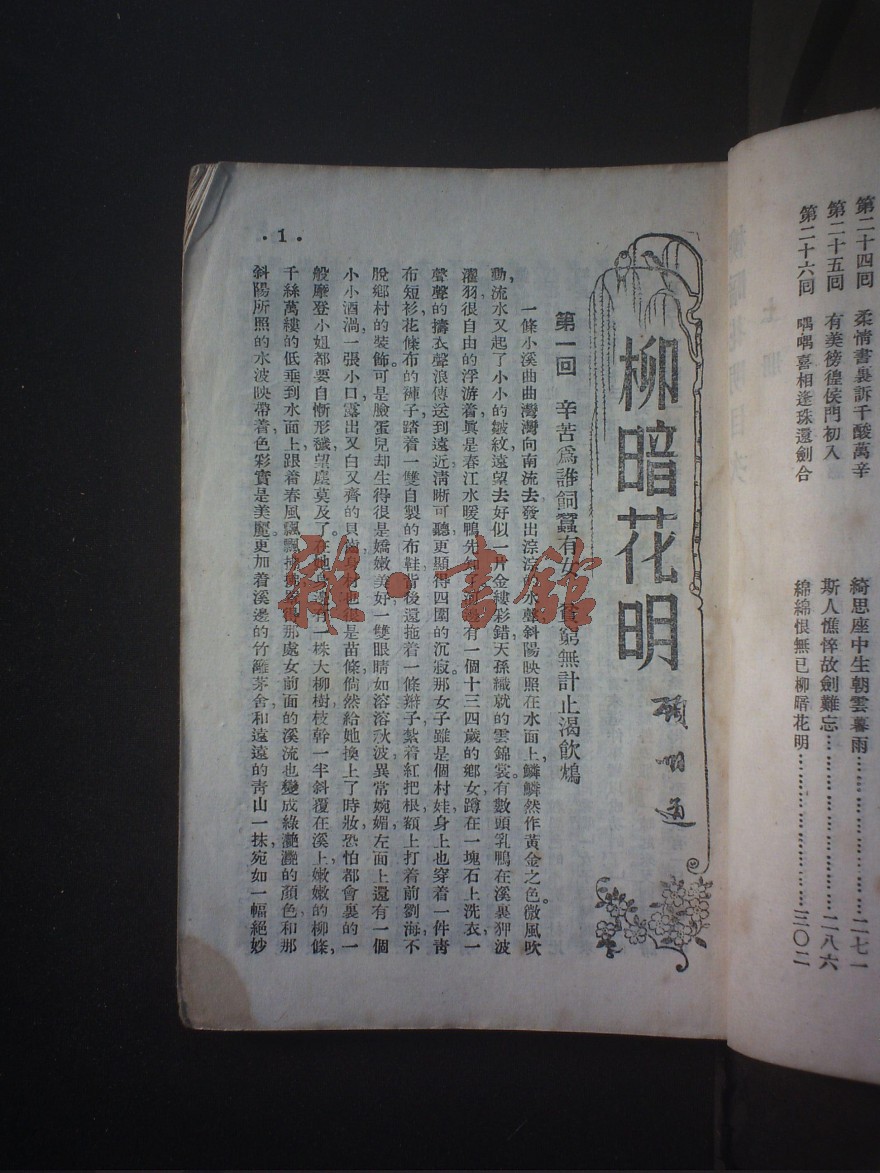 第二十四回 柔情書裏訴千酸萬辛 綺思座中生朝雲暮雨……二七一
第二十五回 有美徬徨侯門初入 斯人憔悴故劍難忘……二八六
第二十六回 喁喁喜相逢珠還劍合 綿綿恨無已柳暗花明……三〇二
柳暗花明
顧明道
第一回 辛苦爲誰飼蠶有女 貧窮無計止渴飲鴆
一條小溪曲曲灣灣向南流去，發出淙淙水聲，斜陽映照在水面上，鱗鱗然作黃金之色。微風吹
動，流水又起了小小的皺紋，遠望去好似一片金縷彩錯天孫織就的雲錦裳。有數頭乳鴨在溪裏狎波
濯羽，很自由的浮游着，眞是春江水暖鴨先知。溪邊有一個十三四歲的鄉女，蹲在一塊石上洗衣，一
聲聲的擣衣聲浪傳送到遠近，淸晰可聽，更顯得四圍的沉寂。那女子雖是個村娃，身上也穿着一件靑
布短衫，花條布的褲子，踏着一雙自製的布鞋，背後還拖着一條辮子，紮着紅把根，額上打着前劉海，不
脫鄉村的裝飾。可是臉蛋兒却生得很是嬌嫩美好，一雙眼睛如溶溶秋波，異常婉媚，左面上還有一個
小小酒渦，一張小口露出又白又齊的貝齒，身材也很是苗條，倘然給她換上了時妝，恐怕都會裏的一
般摩登小姐都要自慚形穢，望塵莫及了。在她身邊有一株大柳樹，枝幹一半斜覆在溪上，嫩嫩的柳條，
千絲萬縷的低垂到水面上，跟着春風飄飄拂拂，影得那處女前面的溪流也變成綠灔灔的顏色，和那
斜陽所照的水波映帶着，色彩實是美麗。更加着溪邊的竹籬茅舍和遠遠的靑山一抹，宛如一幅絕妙
·1·
雜·書館